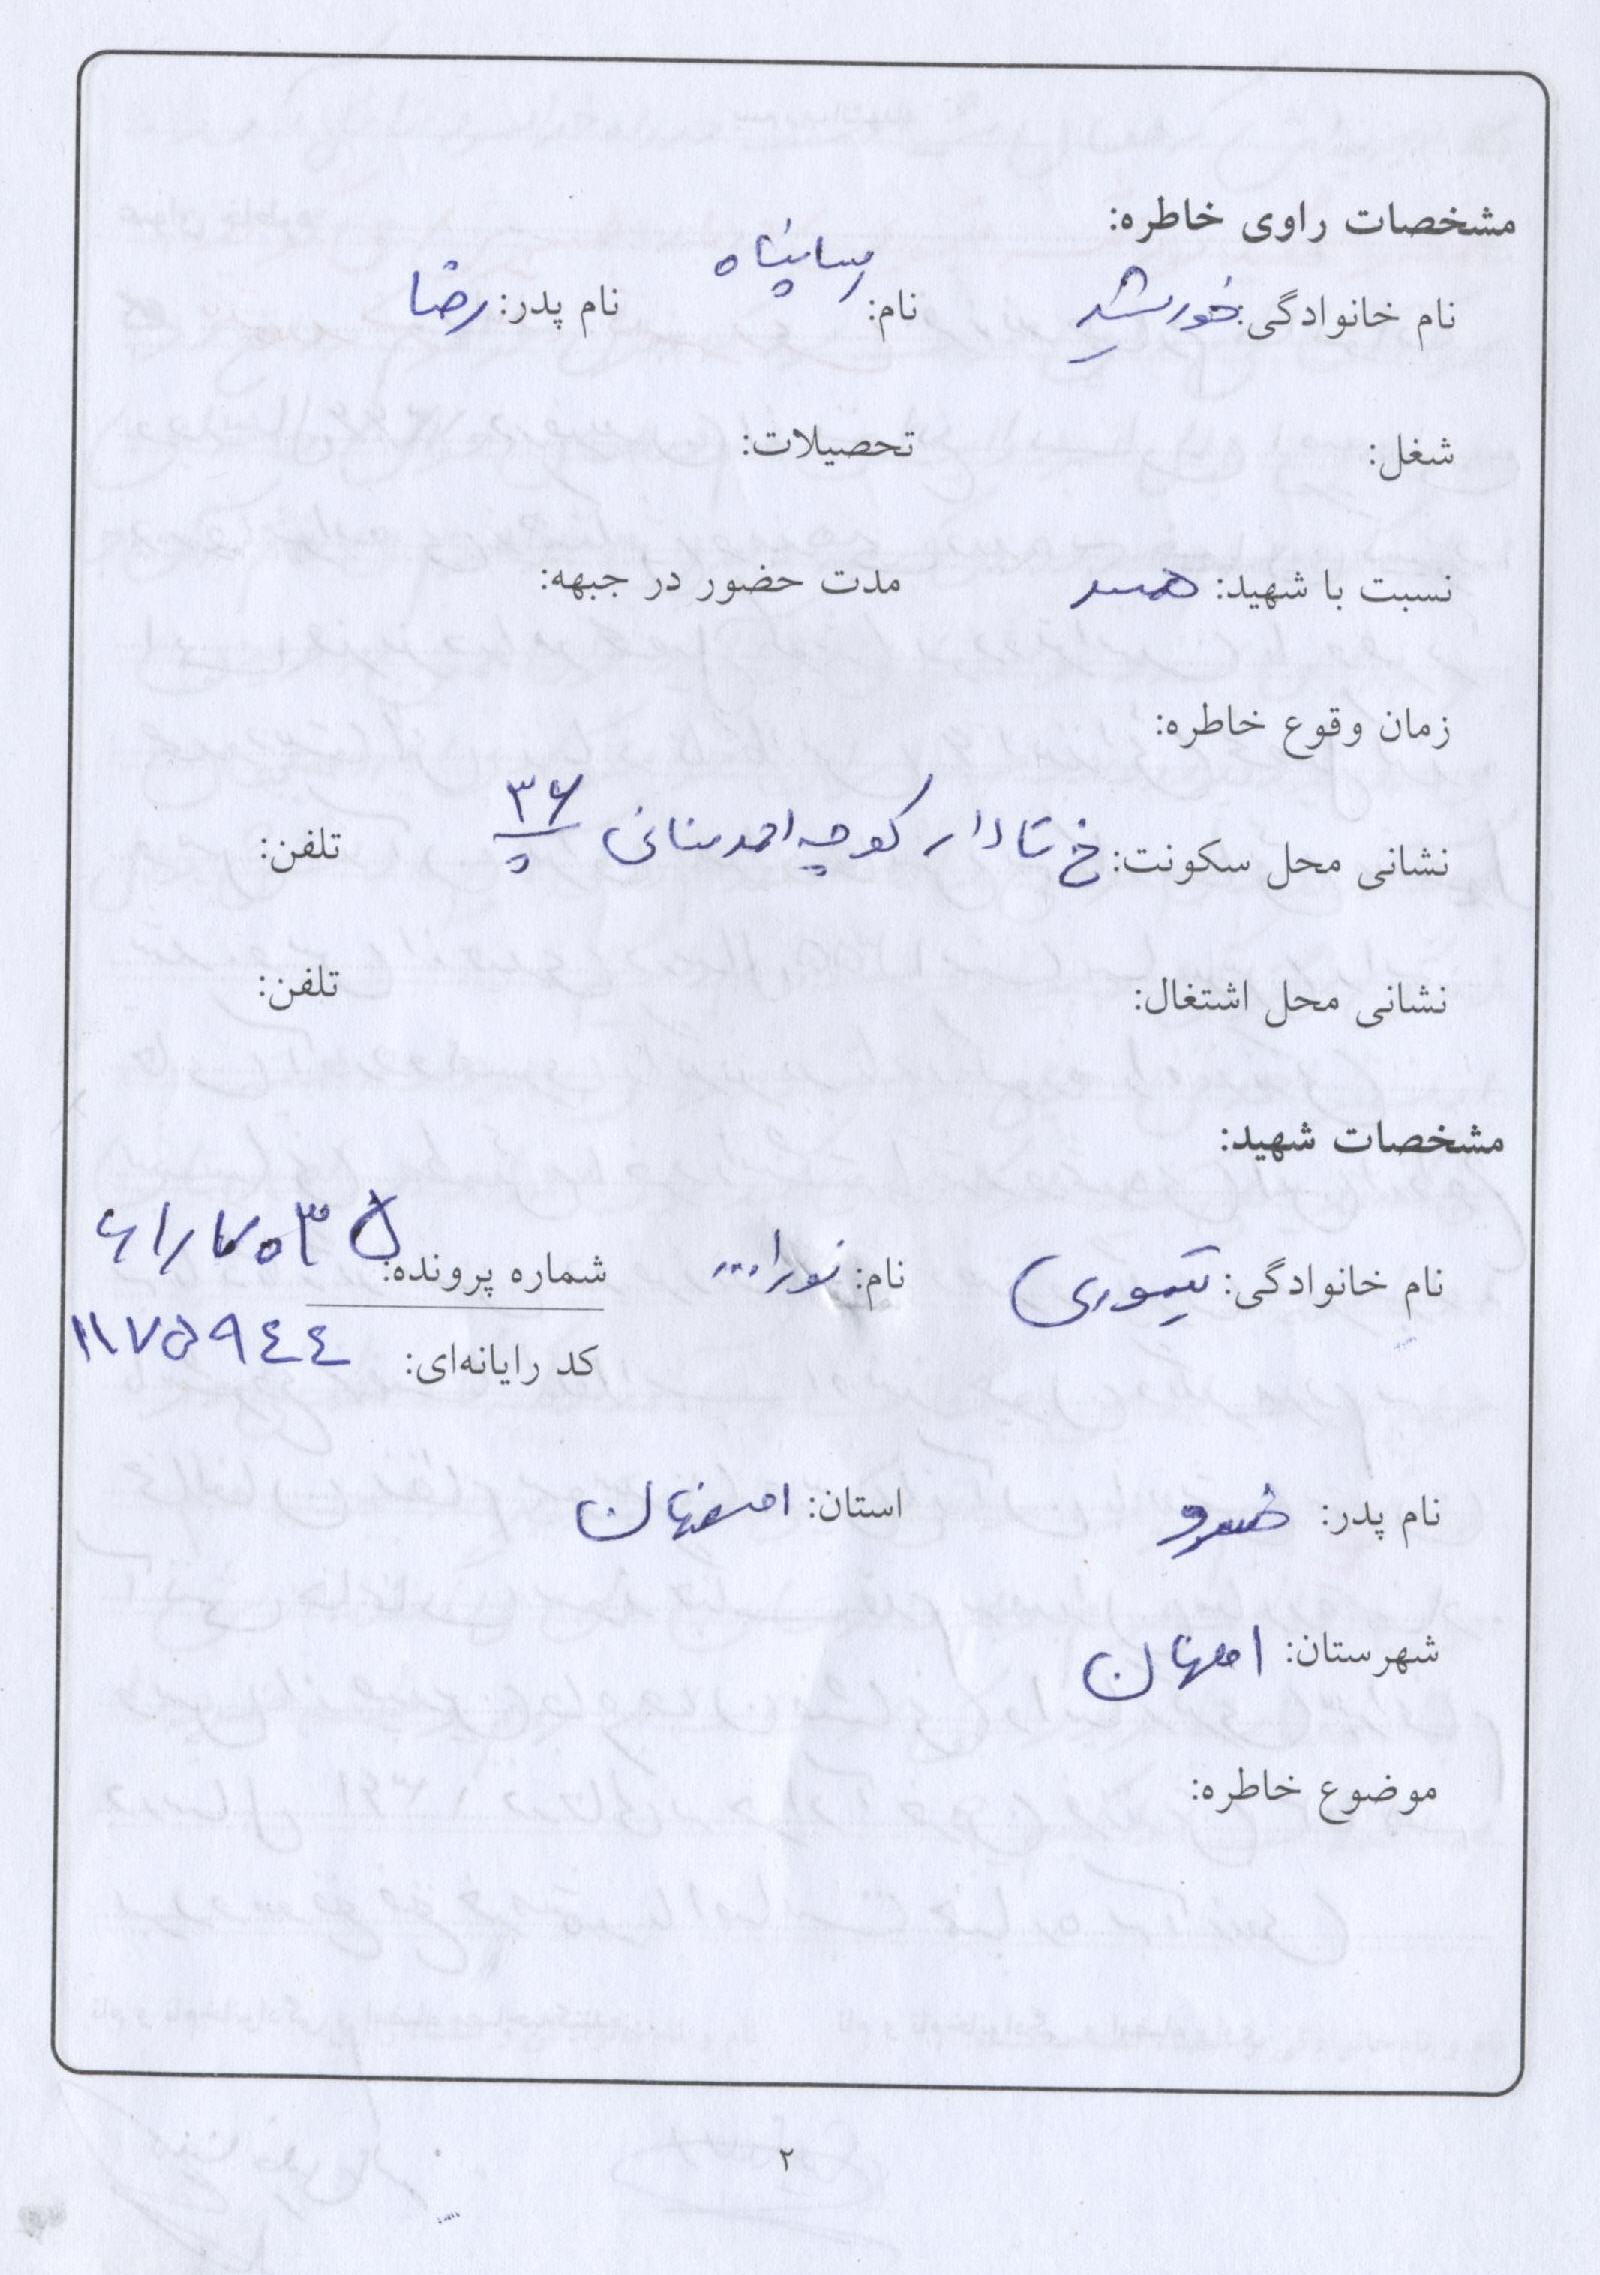 مشخصات راوی خاطره:
نام خانوادگی: خورشید نام: پناه نام پدر: رضا
شغل: تحصیلات:
نسبت با شهید: همسر مدت حضور در جبهه:
زمان وقوع خاطره:
نشانی محل سکونت: خ کوچه احمد پ ۳۶ تلفن:
نشانی محل اشتغال: تلفن:
مشخصات شهید:
نام خانوادگی: تیموری نام: نورا... شماره پرونده:
کد رایانه‌ای: ۱۱۷۵۹۴۴
نام پدر: خسرو استان: اصفهان
شهرستان: اصفهان
موضوع خاطره:
۲